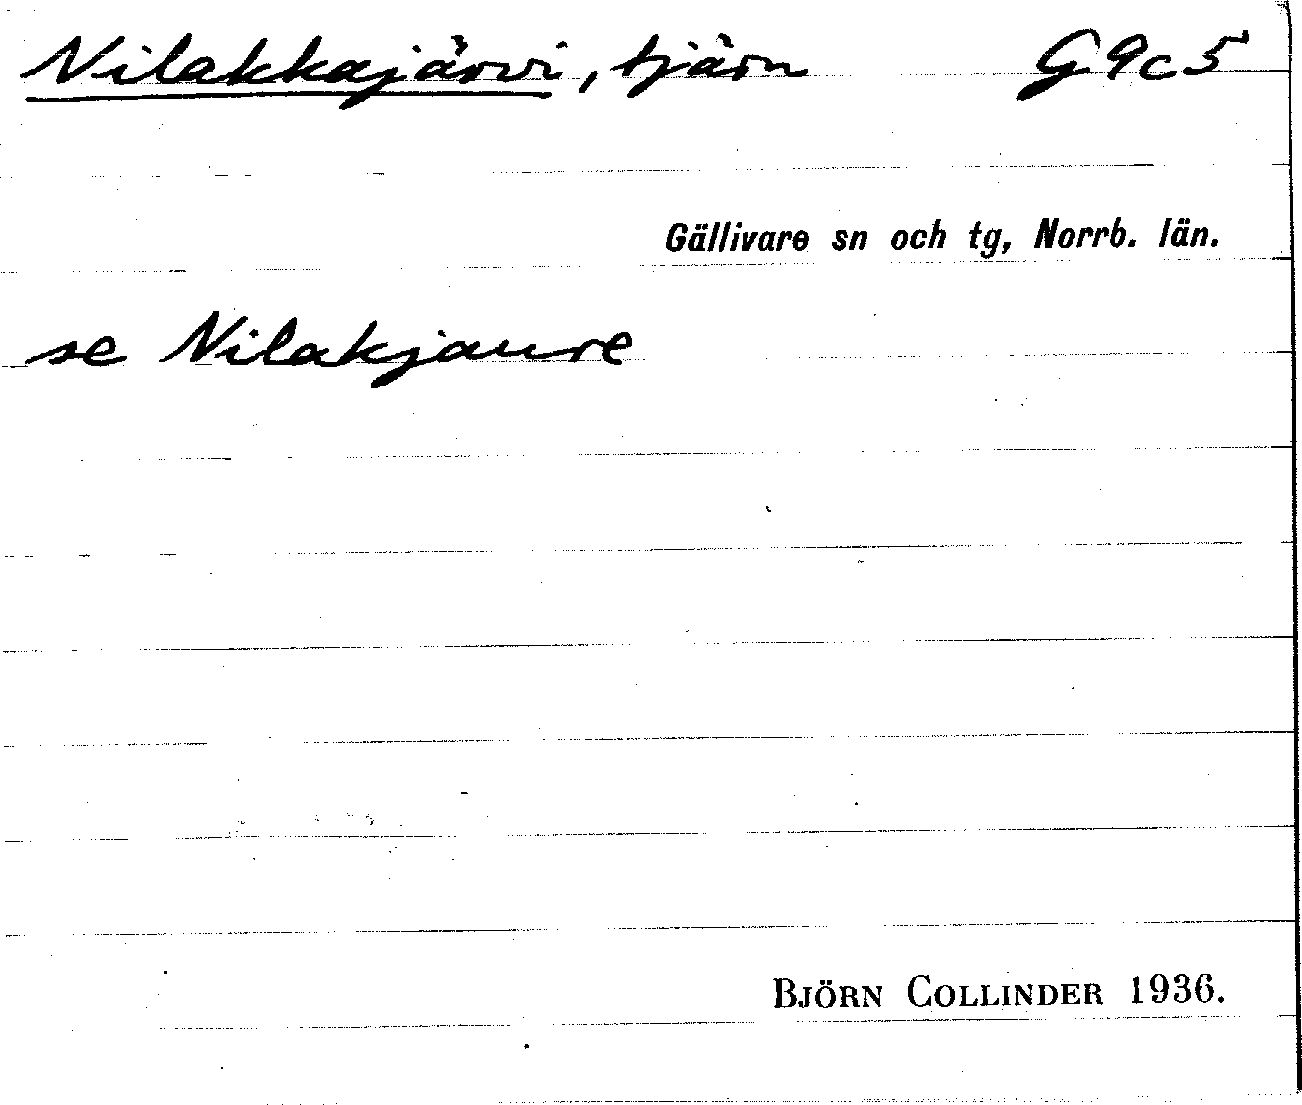 Nilakkajärvi, tjärn G9c5
Gällivare sn och tg, Norrb. län.
se Nilakjaure
BJÖRN COLLINDER 1936.